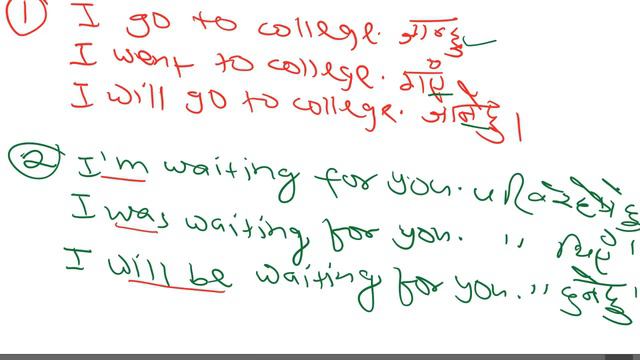 ① I go to college. जान्छु
I went to college. गएँ
I will go to college. जानेछु।
② I'm waiting for you. पर्खिरहेछु
I was waiting for you. " थिएँ।
I will be waiting for you. " हुनेछु।